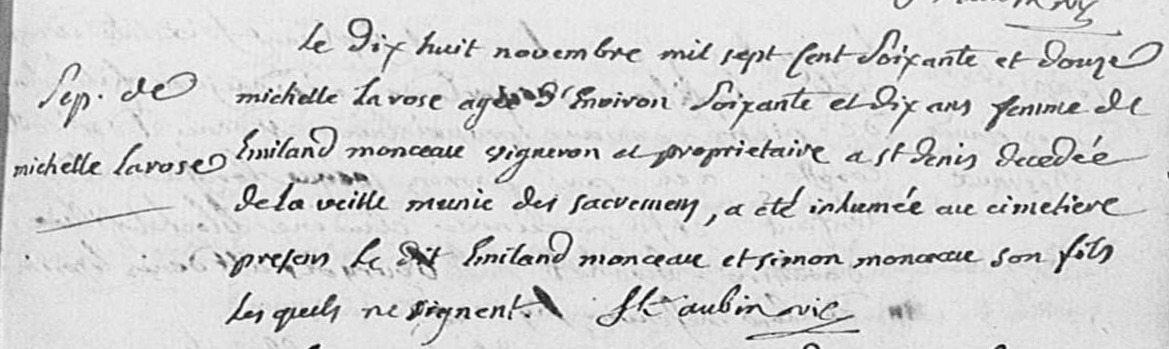 Le dix huit novembre mil sept cent soixante et douze
Sep. de
michelle larose
michelle larose agée d'environ soixante et dix ans femme de
Emiland monceau vigneron et proprietaire a st denis decedée
de la veille munie des sacremens, a été inhumée au cimetiere
presens le dit Emiland monceau et simon monceau son fils
les quels ne signent. St aubin vic